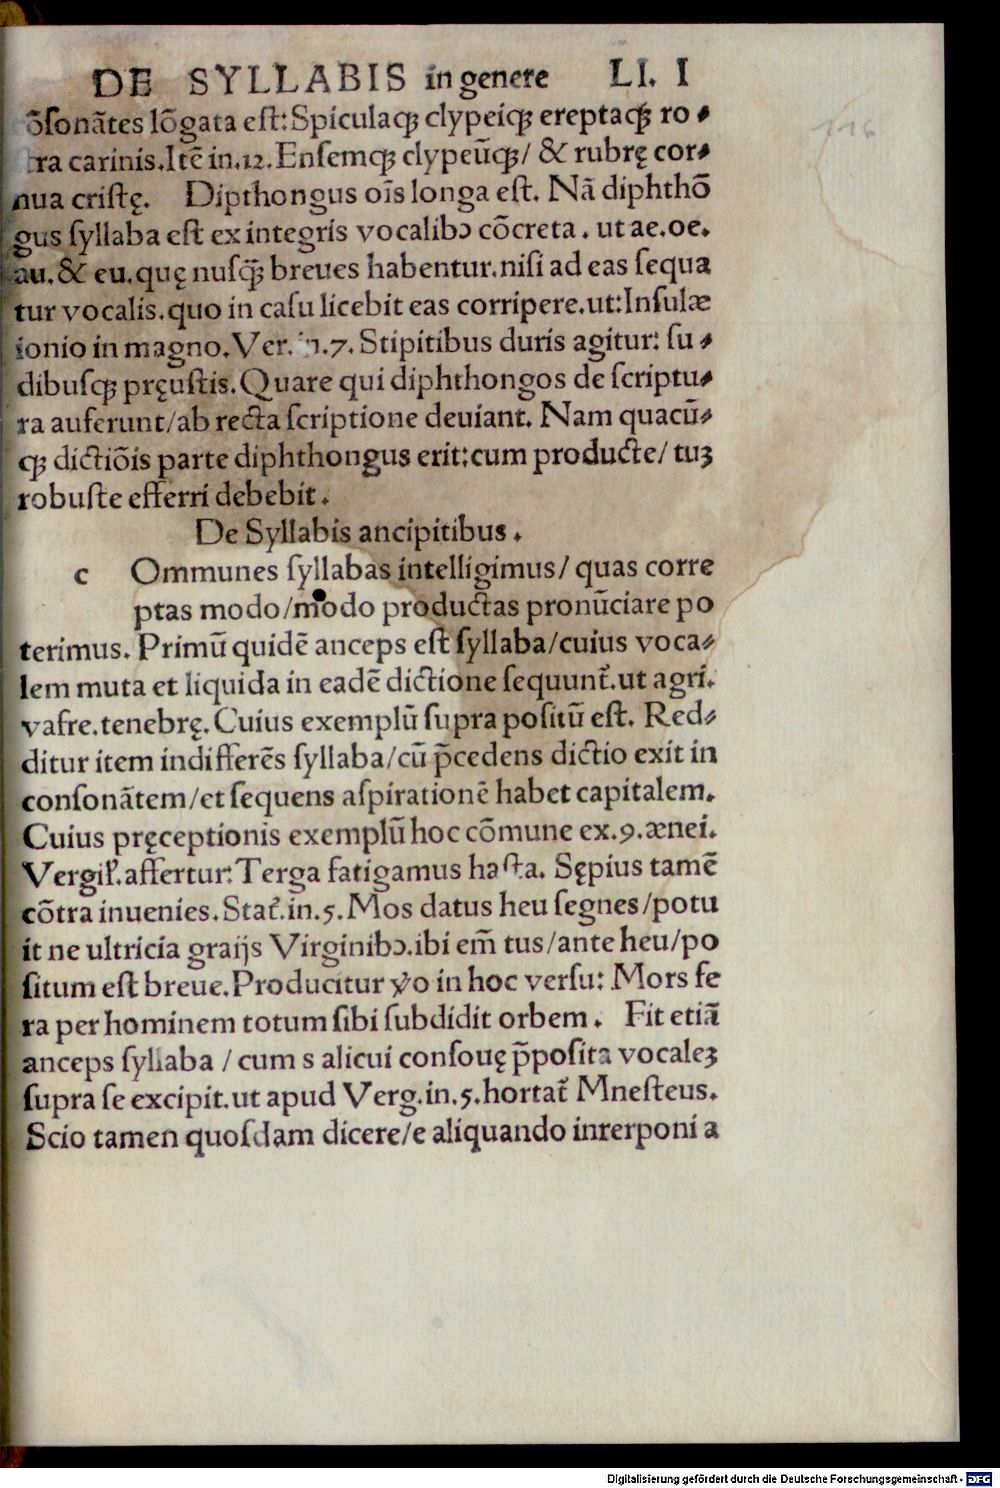 DE SYLLABIS in genere LI. I
õſonãtes lõgata eſt: Spiculaqꝫ clypeiqꝫ ereptaqꝫ ro⸗
ra carinis. Itẽ in .12. Enſemqꝫ clypeũqꝫ/ & rubrę cor⸗
nua criſtę. Dipthongus oĩs longa eſt. Nã diphthõ
gus ſyllaba eſt ex integris vocalibↄ cõcreta . ut ae. oe.
au. & eu. quę nuſqꝫ̃ breues habentur. niſi ad eas ſequa
tur vocalis. quo in caſu licebit eas corripere. ut: Inſulæ
ionio in magno. Ver. in .7. Stipitibus duris agitur: ſu⸗
dibuſqꝫ pręuſtis. Quare qui diphthongos de ſcriptu⸗
ra auferunt/ab recta ſcriptione deuiant. Nam quacũ⸗
qꝫ dictiõis parte diphthongus erit: cum producte/ tuꝫ
robuſte efferri debebit .
De Syllabis ancipitibus .
c Ommunes ſyllabas intelligimus/ quas corre
ptas modo/modo productas pronũciare po
terimus. Primũ quidẽ anceps eſt ſyllaba/cuius voca⸗
lem muta et liquida in eadẽ dictione ſequunt̃. ut agri.
vafre. tenebrę. Cuius exemplũ ſupra poſitũ eſt. Red⸗
ditur item indifferẽs ſyllaba/cũ p̃cedens dictio exit in
conſonãtem/et ſequens aſpirationẽ habet capitalem.
Cuius pręceptionis exemplũ hoc cõmune ex .9. ænei.
Vergil̃. affertur: Terga fatigamus haſta. Sępius tamẽ
cõtra inuenies. Stat̃. in .5. Mos datus heu ſegnes/potu
it ne ultricia graijs Virginibↄ. ibi em̃ tus/ante heu/po
ſitum eſt breue. Producitur ṽo in hoc verſu: Mors fe
ra per hominem totum ſibi ſubdidit orbem . Fit etiã
anceps ſyllaba / cum s alicui conſouę p̃poſita vocaleꝫ
ſupra ſe excipit. ut apud Verg. in .5. hortat̃ Mneſteus.
Scio tamen quoſdam dicere/e aliquando inrerponi a
Digitalisierung gefördert durch die Deutsche Forschungsgemeinschaft - DFG